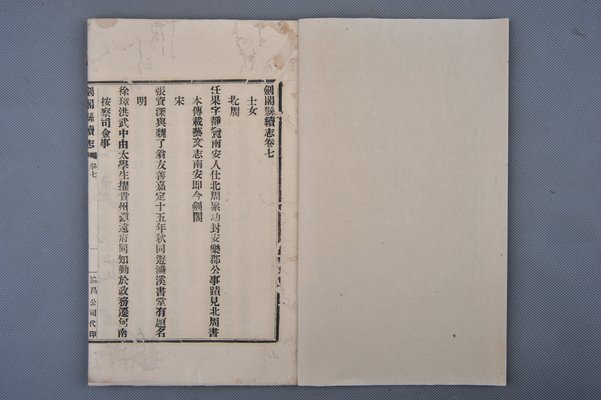 劍閣縣續志卷七
士女
北周
任果字靜鸞南安人仕北周累功封安樂郡公事蹟見北周書
本傳載藝文志南安即今劍閣
宋
張寶深與魏了翁友善嘉定十五年秋同遊濂溪書堂有題名
明
徐璋洪武中由太學生擢貴州鎮遠府同知勤於政務遷河南
按察司僉事
劍閣縣續志
卷七
一
公司代印